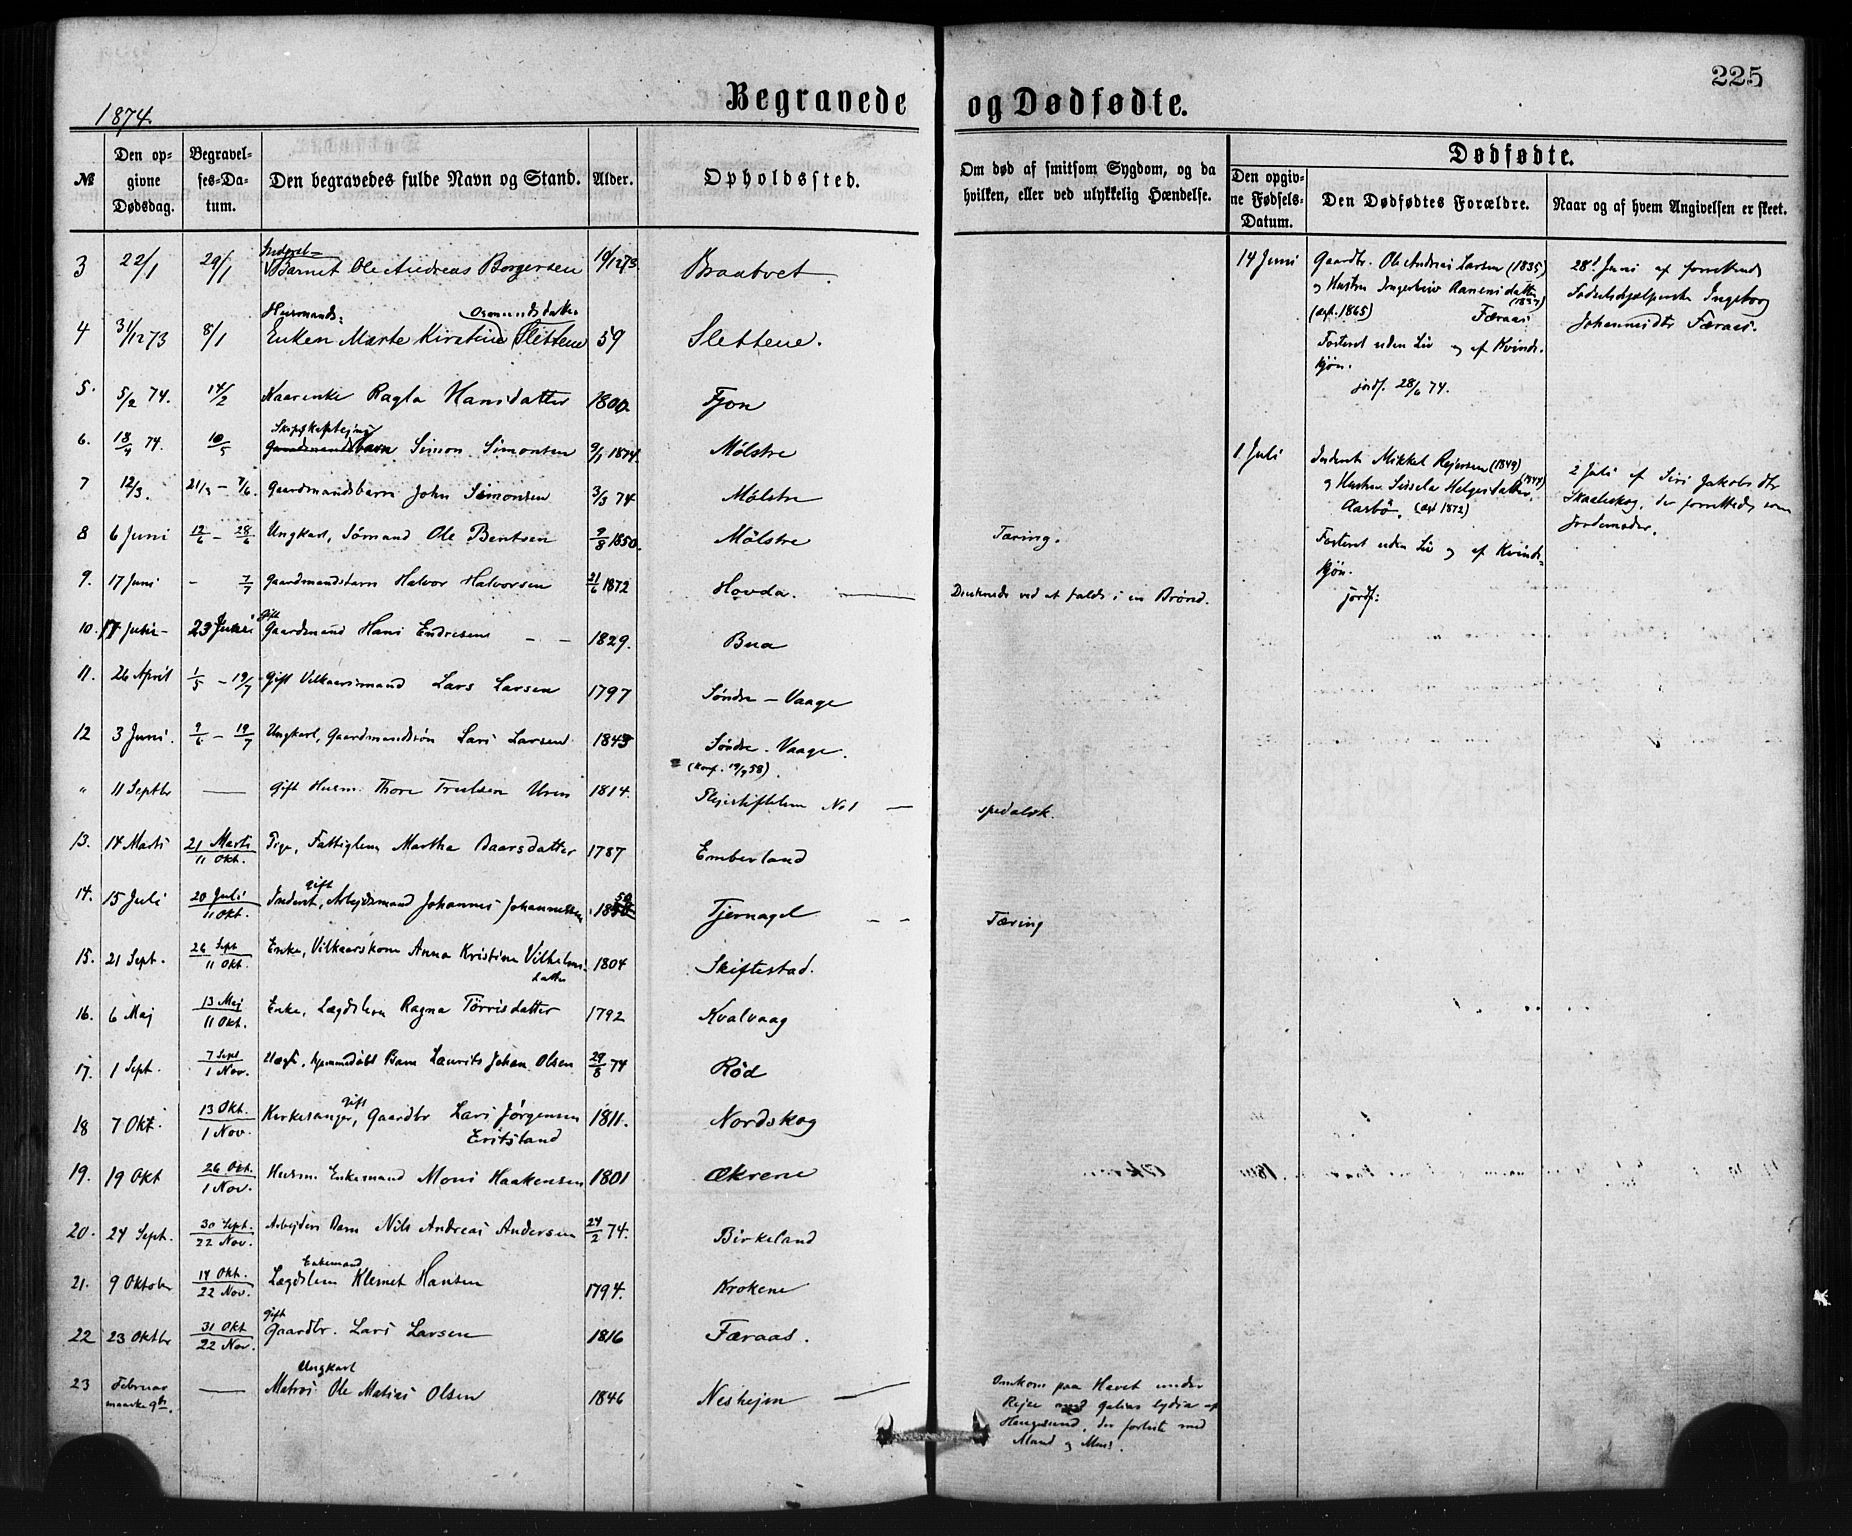 225
1874.
Begravede og Dødfødte.
№
Den op-
givne
Dødsdag.
Begravel-
ses-Da-
tum.
Den begravedes fulde Navn og Stand.
Alder.
Opholdssted.
Om død af smitsom Sygdom, og da
hvilken, eller ved ulykkelig Hændelse.
Dødfødte.
Den opgiv-
ne Fødsels-
Datum.
Den Dødfødtes Forældre.
Naar og af hvem Angivelsen er skeet.
3 22/1 29/1 Barnet Ole Andreas Borgersen 19/12 73 Braatvet
Husmands- Osmundsdatter
4 31/12 73 8/1 Enken Marte Kirstine Slettene 59 Slettene.
5. 5/2 74. 14/2 Kaarenke Ragla Hansdatter 1800. Tjon
6. 18/4 74. 10/5 Gaardmandsbarn Simon Simonsen 9/1 1874. Mølstre
7 12/3. 21/3 - 7/6. Gaardmandsbarn John Simonsen 3/3 74 Mølstre
8 6 Juni 12/6 - 28/6 Ungkarl, Sømand Ole Bentsen 9/8 1850. Mølstre Tæring.
9. 17 Juni - 7/7 Gaardmandsbarn Halvor Halvorsen 21/6 1872 Hovda. Druknede ved at falde i en Brønd.
gift
10. 17 Juni - 23 Juni Gaardmand Hans Endresen 1829. Bua
11. 26 April 1/5 - 19/7 Gift Vilkaarsmand Lars Larsen 1797 Søndre - Vaage
12 3 Juni. 9/6 - 19/7 Ungkarl, Gaardmandssøn Lars Larsen 1843 Søndre - Vaage.
(konf. 19/9 58).
" 11 Septbr Gift Husm. Thore Trulsen Uren 1814. Plejestiftelsen No 1 spedalsk.
13. 14 Marts 21 Marts / 11 Okt. Pige, Fattiglem Martha Baarsdatter 1787 Emberland
gift
14. 15 Juli 20 Juli / 11 Okt. Inderst, Arbejdsmand Johannes Johannessen 1850 Tjernagel Tæring
15. 21 Sept. 26 Sept / 11 Okt. Enke, Vilkaarskone Anna Kristine Vilhelms-
datter 1804 Skiftestad.
16. 6 Maj 13 Maj / 11 Okt. Enke, Lægdslem Ragna Tørrisdatter 1792 Kvalvaag
17. 1 Sept. 7 Sept / 1 Nov. Uægte, hjemmedøbt Barn Laurits Johan Olsen 29/8 74 Rød
gift
18 7 Okt. 13 Okt. / 1 Nov. Kirkesanger, Gaardbr Lars Jørgensen
Eritsland 1811. Nordskog
19. 19 Okt 26 Okt. / 1 Nov. Husm. Enkemand Mons Haakensen 1801 Økrene
20. 24 Sept. 30 Sept. / 22 Nov. Arbejders Barn Nils Andreas Andersen 24/2 74. Birkeland
Enkemand
21. 9 Oktober 14 Okt. / 22 Nov. Lægdslem Klemet Hansen 1794. Krokene
gift
22 23 Oktbr 31 Okt / 22 Nov. Gaardbr. Lars Larsen 1816 Færaas.
Ungkarl
23 Februar
Matros Ole Matias Olsen 1846 Neshejm
Omkom paa Havet under
Rejse med galias Lydia af
Haugesund, der forliste med
Mand og Mus.
14 Juni Gaardbr. Ole Andreas Larsen (1835)
og Hustru Ingerleiv Ranensdatter
(1837)
(ægt. 1865) Færaas
Fosteret uden Liv og af Kvinde-
kjøn.
jordf. 28/6 74.
28d Juni af forrettende
Fødselshjælperske Ingeborg
Johannesdtr Færaas.
1 Juli Inderst Mikkel Rejersen (1849)
og Hustru Sissela Helgesdatter
Aasbø. (ægt 1872)
Fosteret uden Liv og af Kvinde-
kjøn.
jordf:
2 Juli af Siri Jakobsdtr
Skaaleskog, der forrettede som
Jordemoder.